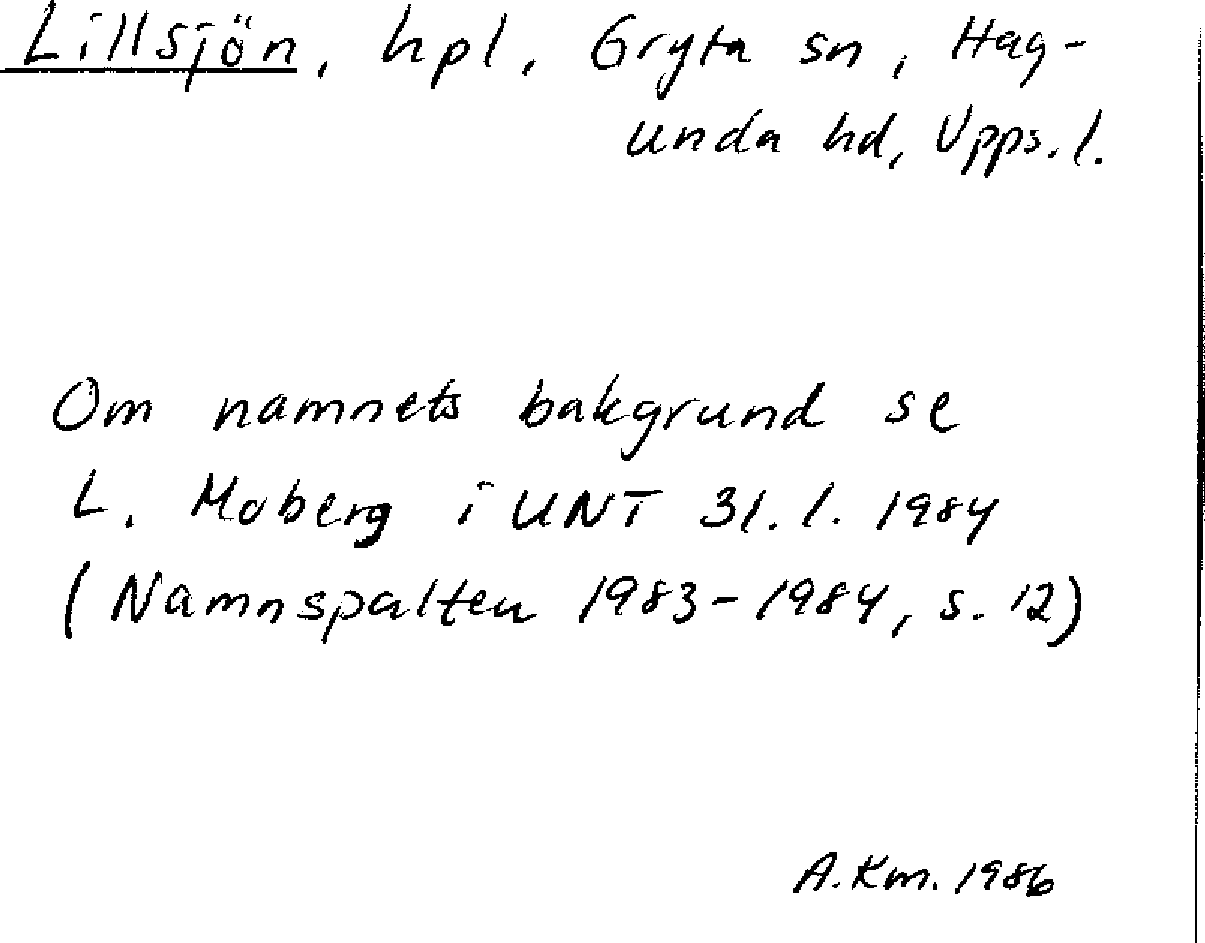 Lillsjön, hpl, Gryta sn, Hag-
unda hd, Upps. l.
Om namnets bakgrund se
L. Moberg i UNT 31.1. 1984
(Namnspalten 1983-1984, s. 12)
A.Km. 1986